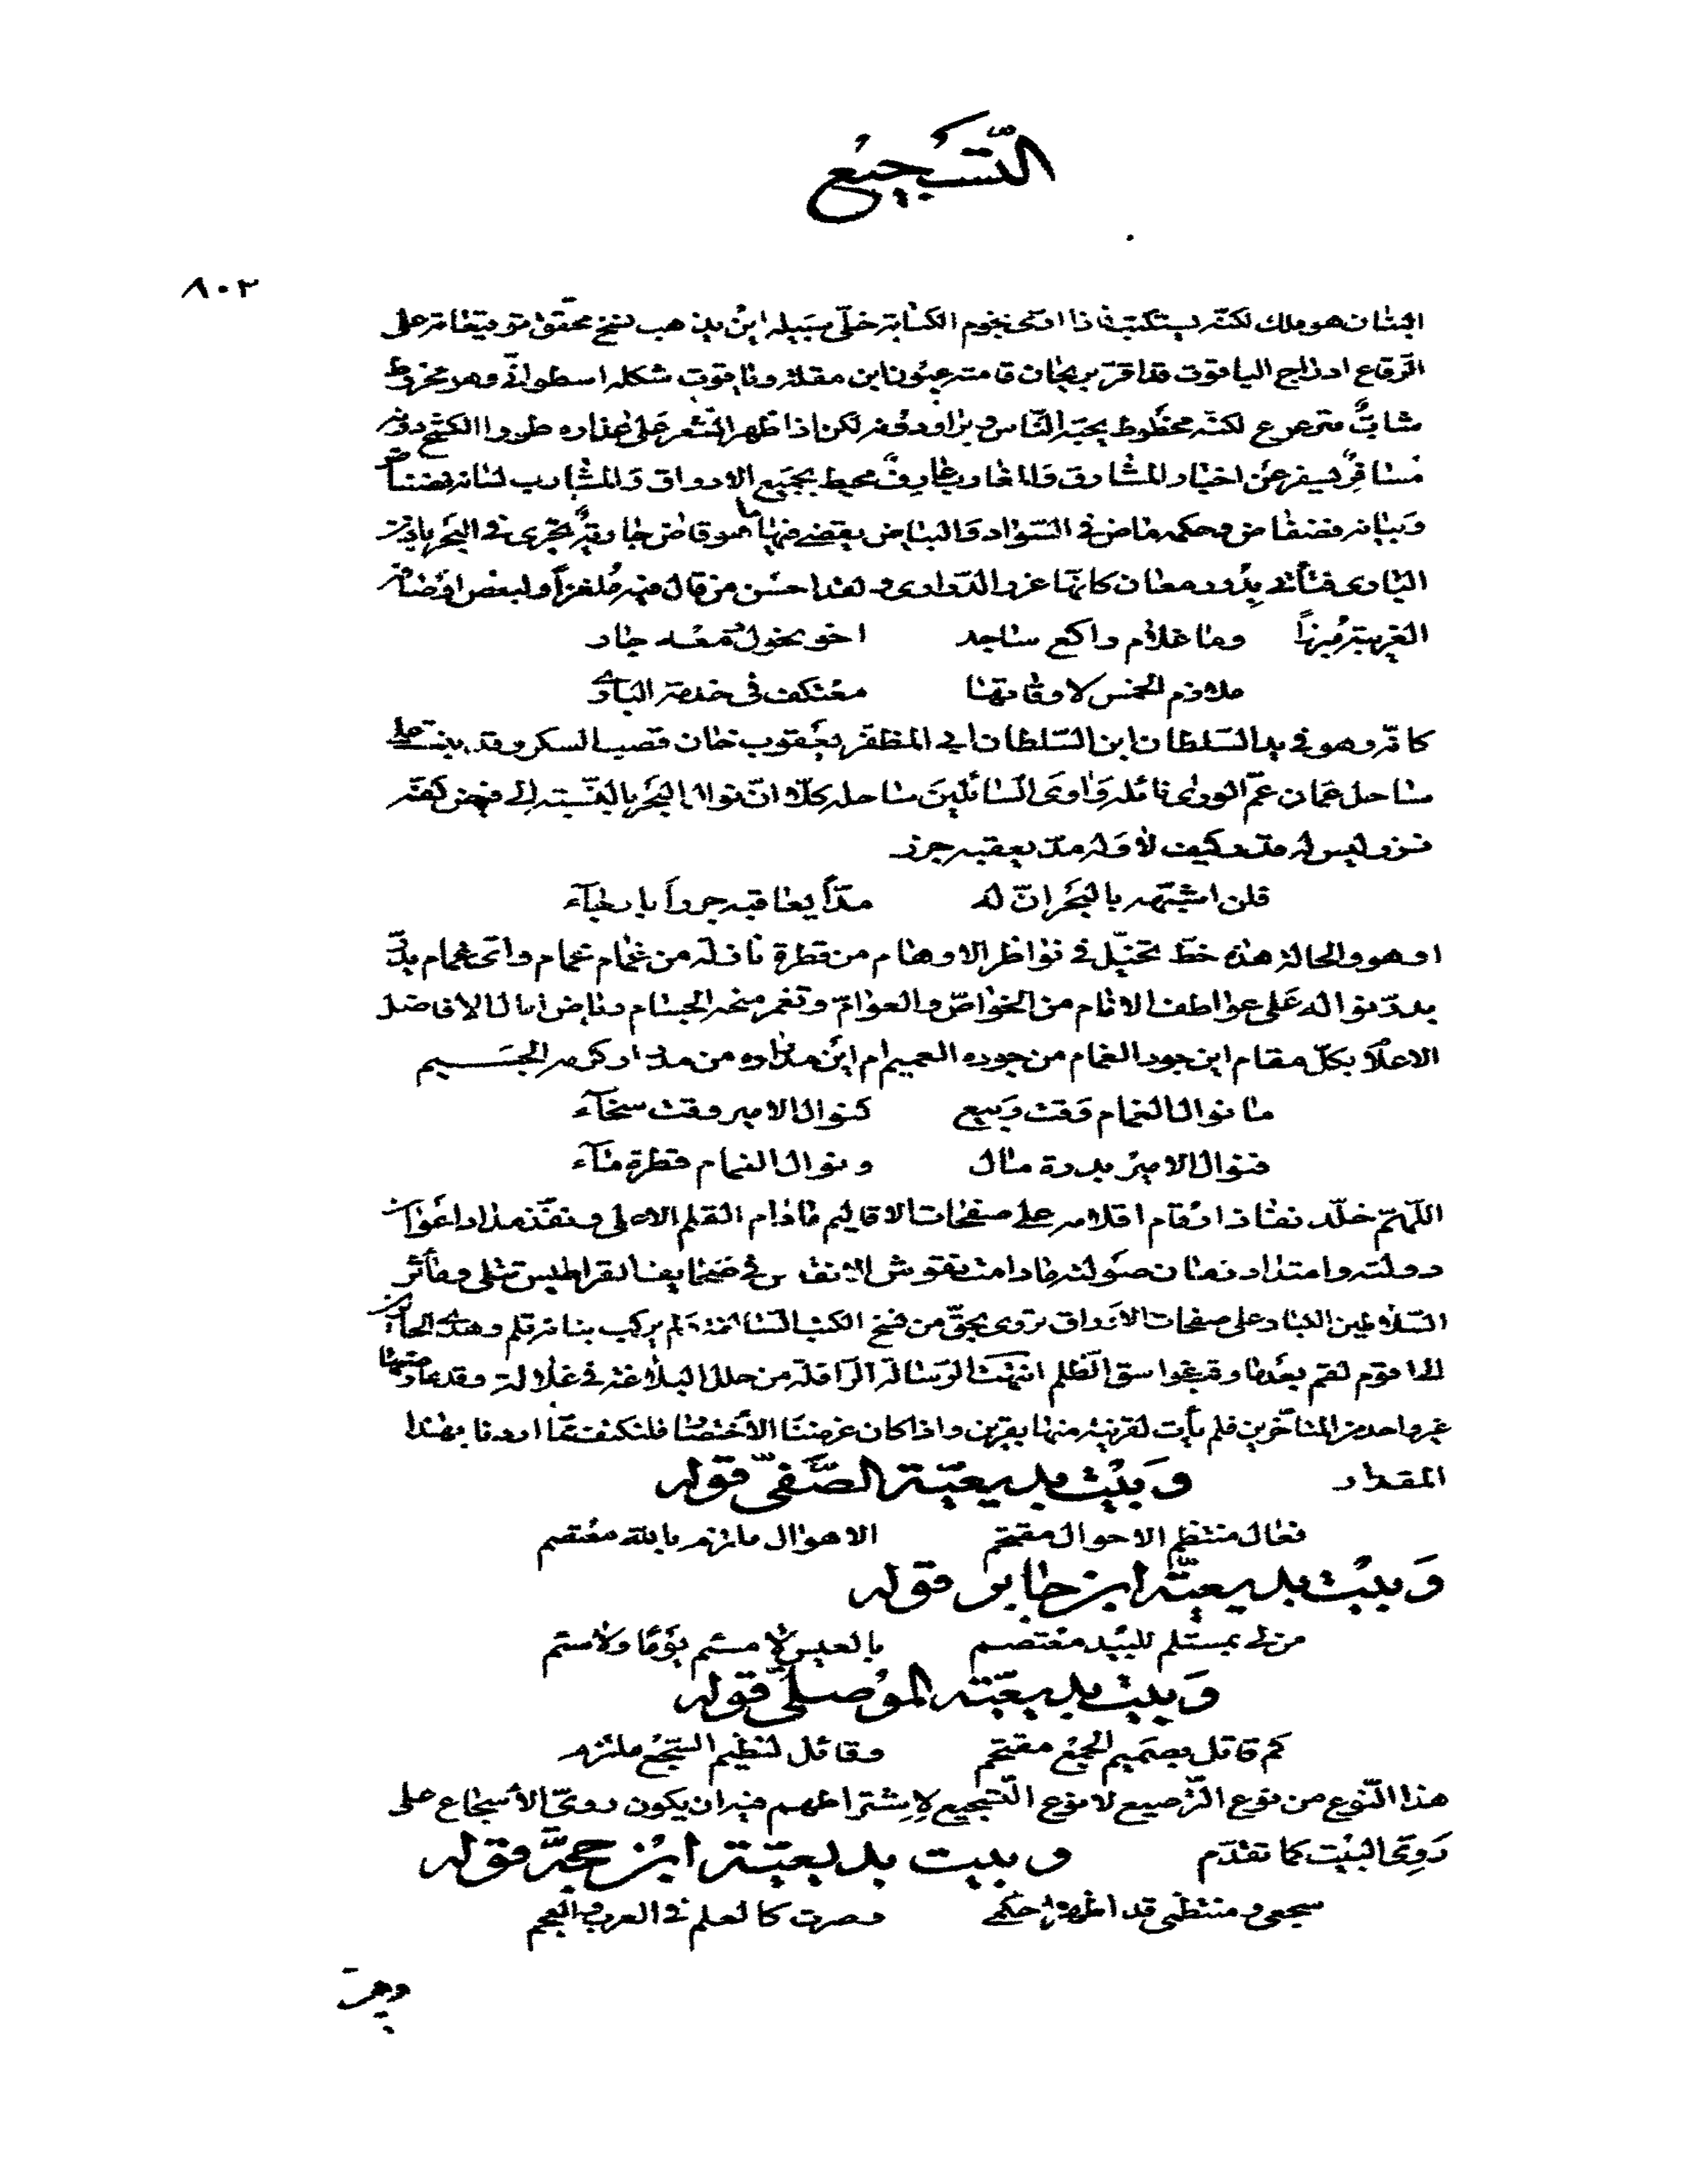 التسجيع
٨٠٣
البنان هو ملك لكنه يستكتب فاذا ادى نجوم الكتابة خلى سبيله اين يذهب نسخ محقق توقيعاته على
الرقاع ادراج الياقوت قد اقر بريحان قامته عيون ابن مقلة وياقوت شكله اسطوانة وهو مخروط
شاب مترعرع لكنه محظوظ يحبه الناس لكن اذا ظهر الشعر على عذاره طووا الكشح دونه
مسافر يسفر عن اخبار المشارق والمغارب عارف محيط بجميع الاذواق والمشارب لسانه
وبيانه حكمه ماض في السواد والبياض يقضي فيها ما هو قاض جارية تجرى في البحر باذن
البارى فتأتى بدرر معان كانها غرر الدرارى ولقد احسن من قال فيه ملغزا ولبعض افضال
الغريبة مبرزا وما غلام راكع ساجد اخو نحول دمعه جار
ملازم الخمس لاوقاتها معتكف في خدمة البارى
كانه وهو في يد السلطان ابن السلطان ابي المظفر يعقوب خان قصب السكر وقد ينبت على
ساحل عمان عم الورى نائله واوى السائلين ساحله كلا ان نوال البحر بالنسبة الى فيض كفه
نزر وليس له مد وكيف لا وله مد يعقبه جزر
فلن اشبهه بالبحر ان له مدا يعاقبه جزرا بارجآء
او هو والحالة هذه خط تخيل في نواظر الاوهام من قطرة نازلة من غمام واى غمام يد
بدر نواله على عواطف الانام من الخواص والعوام وتغمر منحه الجسام رياض امال الافاضل
الاعلآ بكل مقام اين جود الغمام من جوده العميم ام اين مداره من مدار كرمه الجسيم
ما نوال الغمام وقت ربيع كنوال الامير وقت سخآء
فنوال الامير بدرة مال ونوال الغمام قطرة مآء
اللهم خلد نفاذ ارقام اقلامه على صفحات الاقاليم مادام القلم الاعلى ونفذ مداد اعوان
دولته وامتداد زمان صولته مادامت نقوش الانفس في صحايف القراطيس تتلى ومآثر
السلاطين الكبار على صفحات الاوراق تروى بحق من نسخ الكتب السالفة ولم يركب بنانه قلم وهدى
الى اقوم لقم بعدما وقعوا سوق الظلم انتهت الرسالة الرافلة من حلل البلاغة في غلالة وقد عارضها
غير واحد من المتأخرين فلم يأت لقرينة منها بقرين واذا كان غرضنا الاختصار فلنكتف بما اوردنا بهذا
المقدار وبيت بديعية الصفي قوله
فعال منتظم الاحوال مقتحم الاهوال ملتزم بالله معتصم
وبيت بديعية ابن جابر قوله
من لي بمستلم للبيد معتصم بالعيس لا مسئم يوما ولا سئم
وبيت بديعية الموصلي قوله
كم قاتل بصميم الجمع مقتحم وقائل لنظيم السجع ملتزم
هذا النوع من نوع الترصيع لا نوع التسجيع لاشتراطهم فيه ان يكون روى الأسجاع على
روى البيت كما تقدم وبيت بديعية ابن حجة قوله
سجعى ومنتظمى قد اظهرا حكمى وصرت كالعلم في العرب والعجم
وبيت